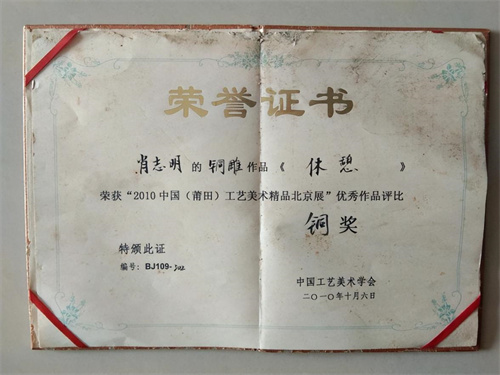 荣誉证书
肖志明的铜雕作品《休憩》
荣获“2010中国（莆田）工艺美术精品北京展”优秀作品评比
铜奖
特颁此证
编号：BJ109-302
中国工艺美术学会
二〇一〇年十月六日